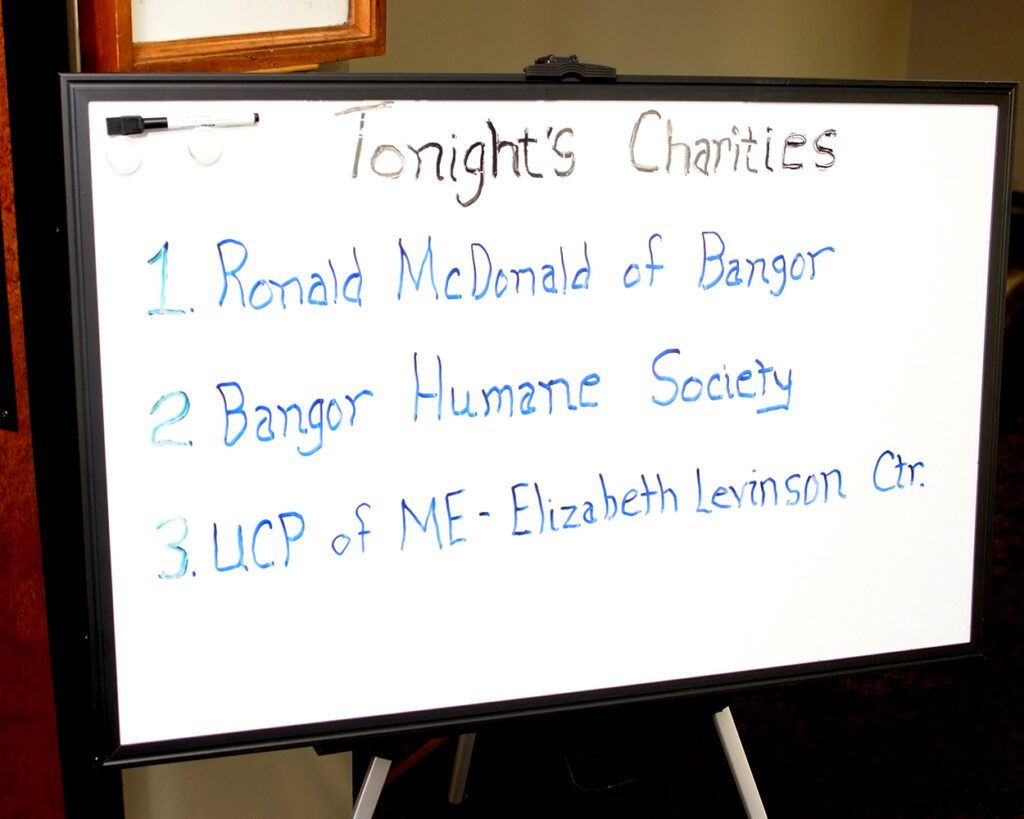 Tonight's Charities
1. Ronald McDonald of Bangor
2. Bangor Humane Society
3. UCP of ME - Elizabeth Levinson Ctr.